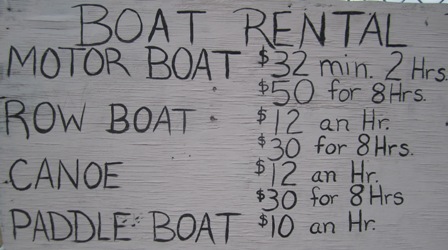 BOAT RENTAL
MOTOR BOAT $32 min. 2 Hrs.
$50 for 8Hrs.
ROW BOAT $12 an Hr.
$30 for 8Hrs.
CANOE $12 an Hr.
$30 for 8Hrs
PADDLE BOAT $10 an Hr.